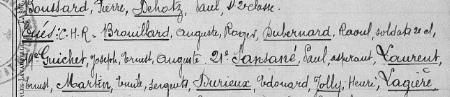 Boussard, Pierre, Dehotz, Paul, St 2e classe.
Tués: C.H.R. Brouillard, Auguste, Roger, Dubernard, Raoul, soldats 2e cl,
Guichet, Joseph, Ernest, Auguste. 21e Sansané, Paul, aspirant, Laurent,
Ernest, Martin, Emile, sergents, Durieux, Edouard, Jolly, Henri, Lagière